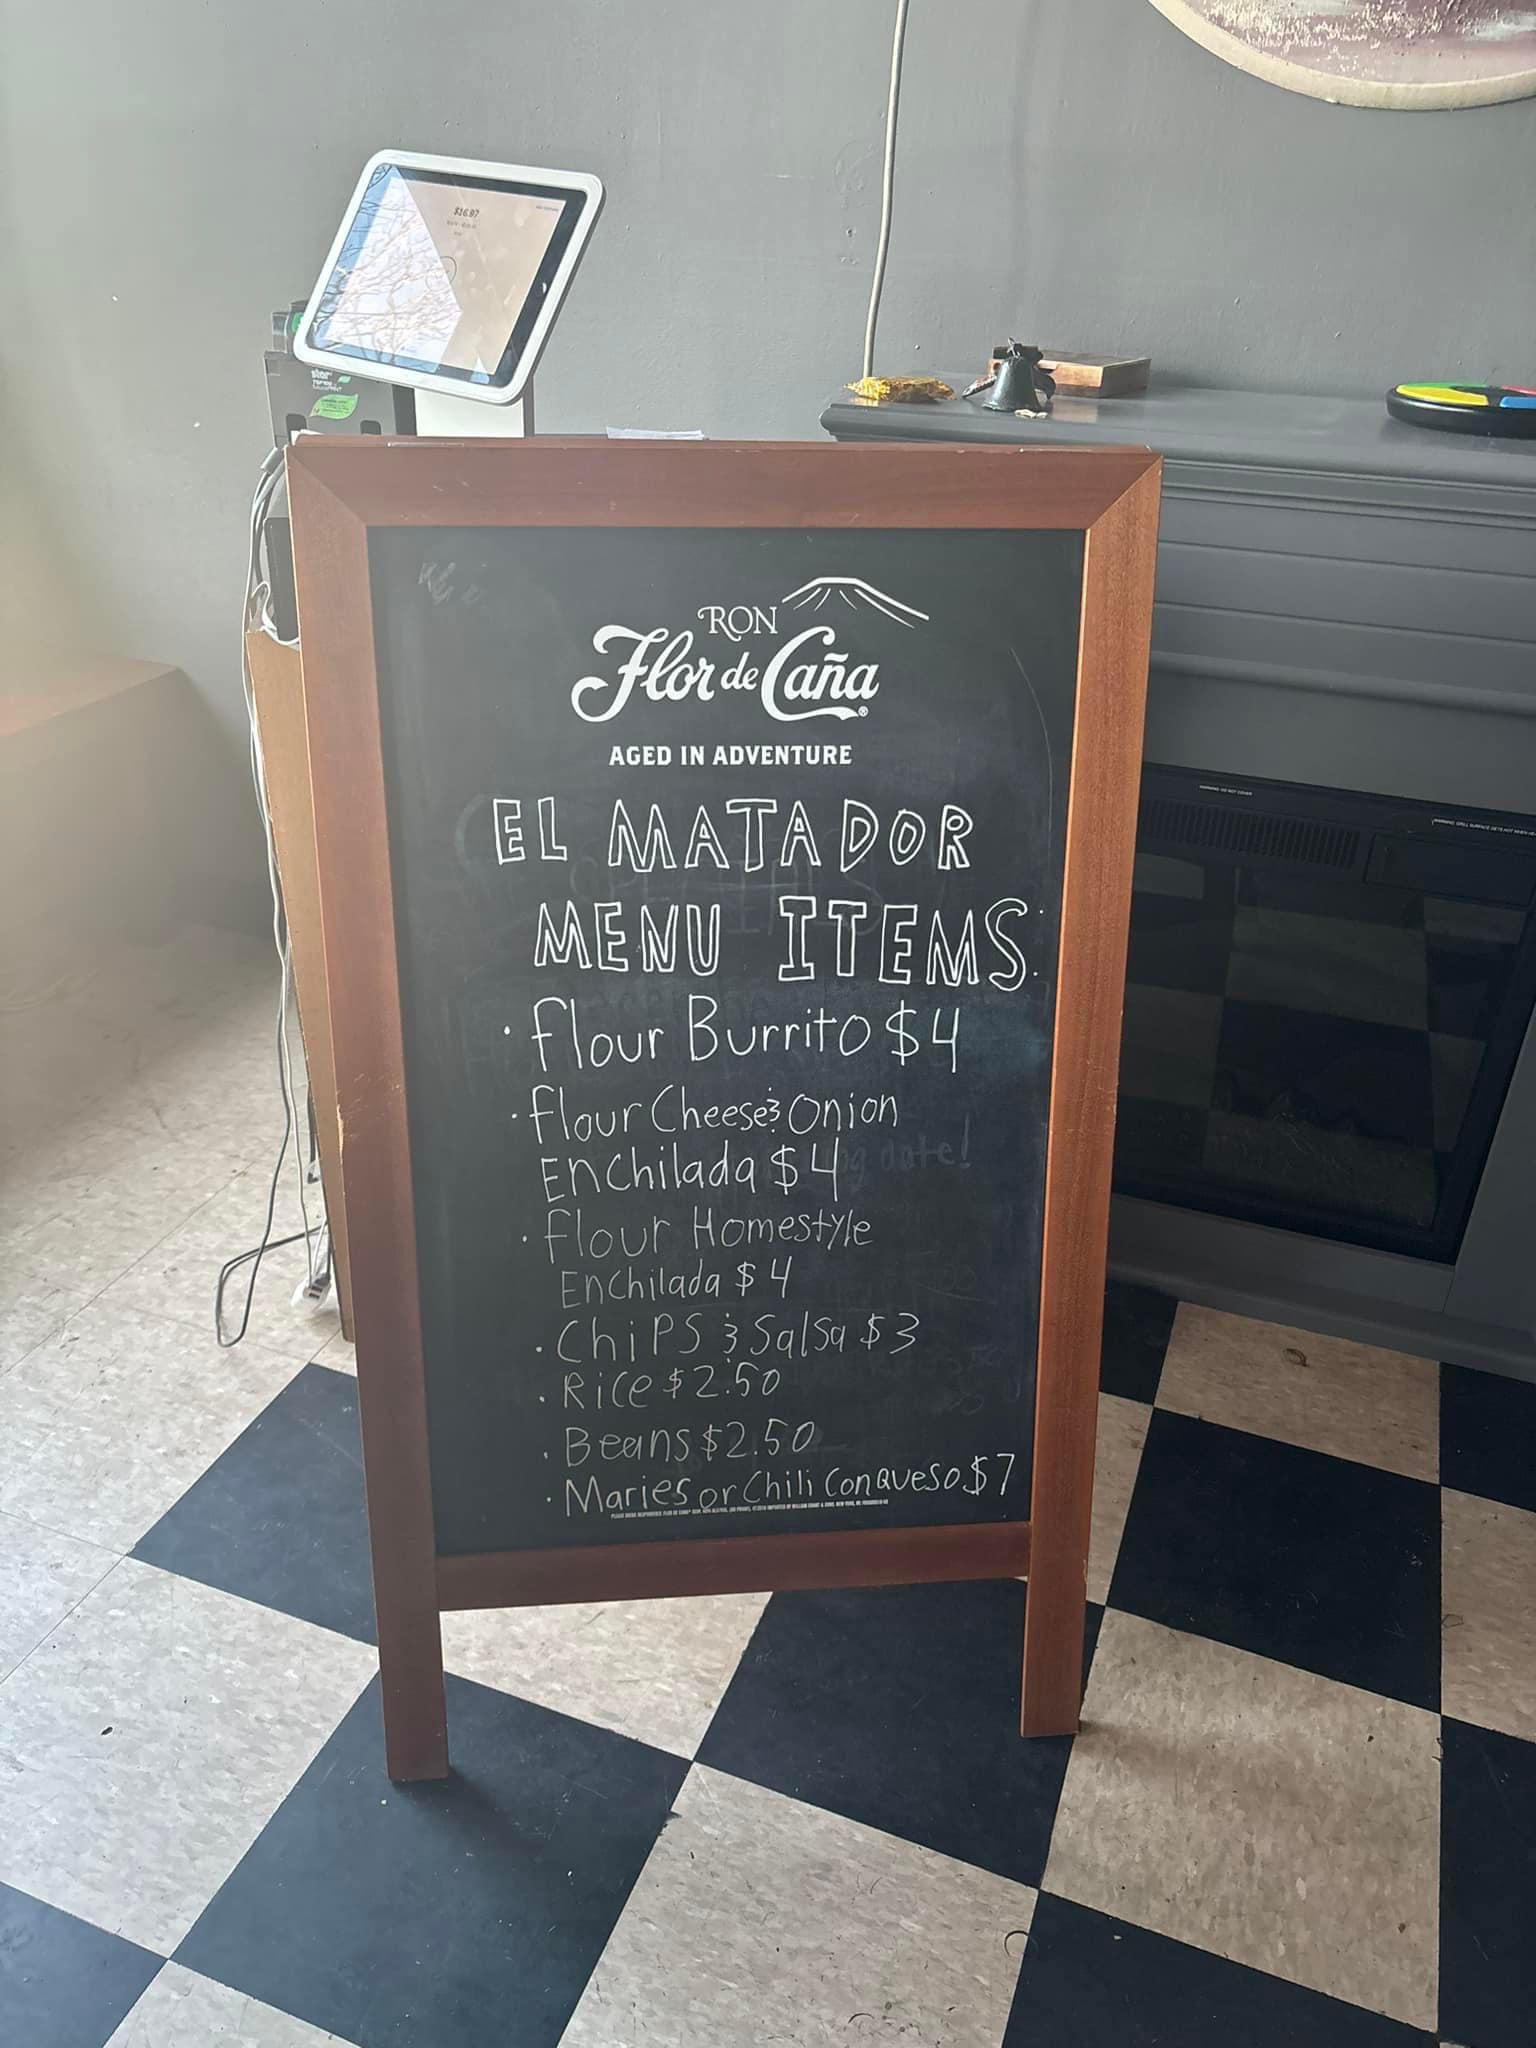 $16.97
RON
Flor de Caña®
AGED IN ADVENTURE
EL MATADOR
MENU ITEMS:
• flour Burrito $4
• flour Cheese & Onion
Enchilada $4
• flour Homestyle
Enchilada $4
• Chips & Salsa $3
• Rice $2.50
• Beans $2.50
• Maries or Chili Con Queso $7
WARNING: DO NOT COVER